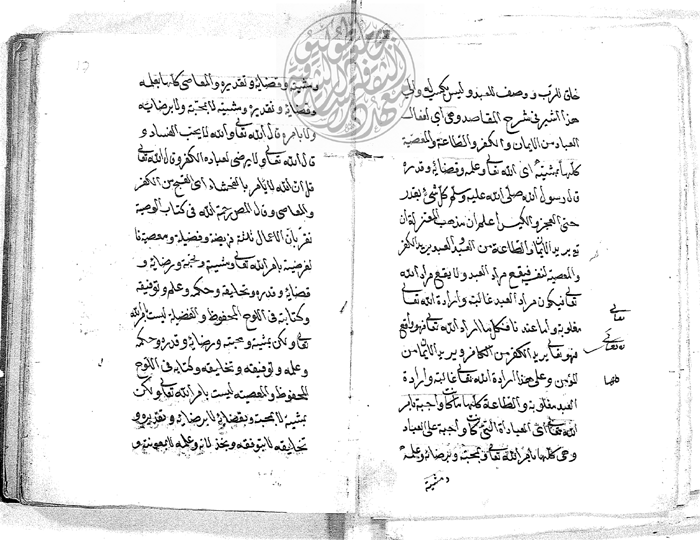 خلق للرب و وصف للعبد وليس بجبر له والى
هذا اشير في شرح المقاصد وهى اى افعال
العباد من الايمان والكفر والطاعة والمعصية
كلها بمشيته اى الله تعالى وعلمه وقضائه وقدره
قال رسول الله صلى الله عليه وسلم كل شئ بقدر
حتى العجز والكيس اعلم ان مذهب المعتزلة ان
يريد الايمان والطاعة من العبد والعبد يريد الكفر
والمعصية لنفسه فيقع مراد العبد ولا يقع مراد الله
تعالى فيكون مراد العبد غالبا وارادة الله تعالى
مغلوبة واما عندنا فكلما اراد الله تعالى فهو واقع
فهو تعالى يريد الكفر من الكافر ويريد الايمان من
المؤمن وعلى هذا ارادة الله تعالى غالبة وارادة
العبد مغلوبة والطاعة كلها ما كانت واجبة بامر
الله تعالى اى العبادة التى كانت واجبة على العباد
وهى كلها بامر الله تعالى وبمحبته وبرضائه وعلمه
تعالى
تعالى
كلها
ومشيته
ومشيته وقضائه وتقديره والمعاصى كلها بعلمه
وقضائه وتقديره ومشيته لا بمحبته ولا برضائه
ولا بامره قال الله تعالى والله لا يحب الفساد و
قال الله تعالى ولا يرضى لعباده الكفر وقال الله تعالى
قل ان الله لا يأمر بالفحشاء اى القبيح من الكفر
والمعاصى وقال المص رحمة الله في كتاب الوصية
نقر بان الاعمال ثلثة فريضة وفضيلة ومعصية فا
لفريضة بامر الله تعالى ومشيته ومحبته ورضائه و
قضائه وقدره وتخليقه وحكمه وعلمه وتوفيقه
وكتابته في اللوح المحفوظ والفضيلة ليست بامر الله
تعالى ولكن بمشيته ومحبته ورضائه وقدره وحكمه
وعلمه وتوفيقه وتخليقه وكتابته في اللوح
المحفوظ والمعصية ليست بامر الله تعالى ولكن
بمشيته لا بمحبته وبقضائه لا برضائه وتقديره و
تخليقه لا بتوفيقه وبخذلانه وعلمه لا بمعونته و